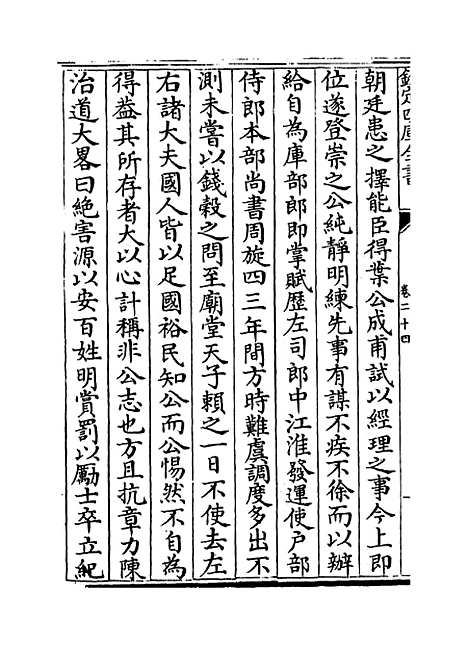 欽定四庫全書
卷二十四
朝廷患之擇能臣得葉公成甫試以經理之事今上即
位遂登崇之公純靜明練先事有謀不疾不徐而以辦
給自為庫部郎即掌賦歴左司郎中江淮發運使戶部
侍郎本部尚書周旋四三年間方時難虞調度多出不
測未嘗以錢穀之問至廟堂天子賴之一日不使去左
右諸大夫國人皆以足國裕民知公而公惕然不自為
得葢其所存者大以心計稱非公志也方且抗章力陳
治道大畧曰絶害源以安百姓明賞罰以勵士卒立紀